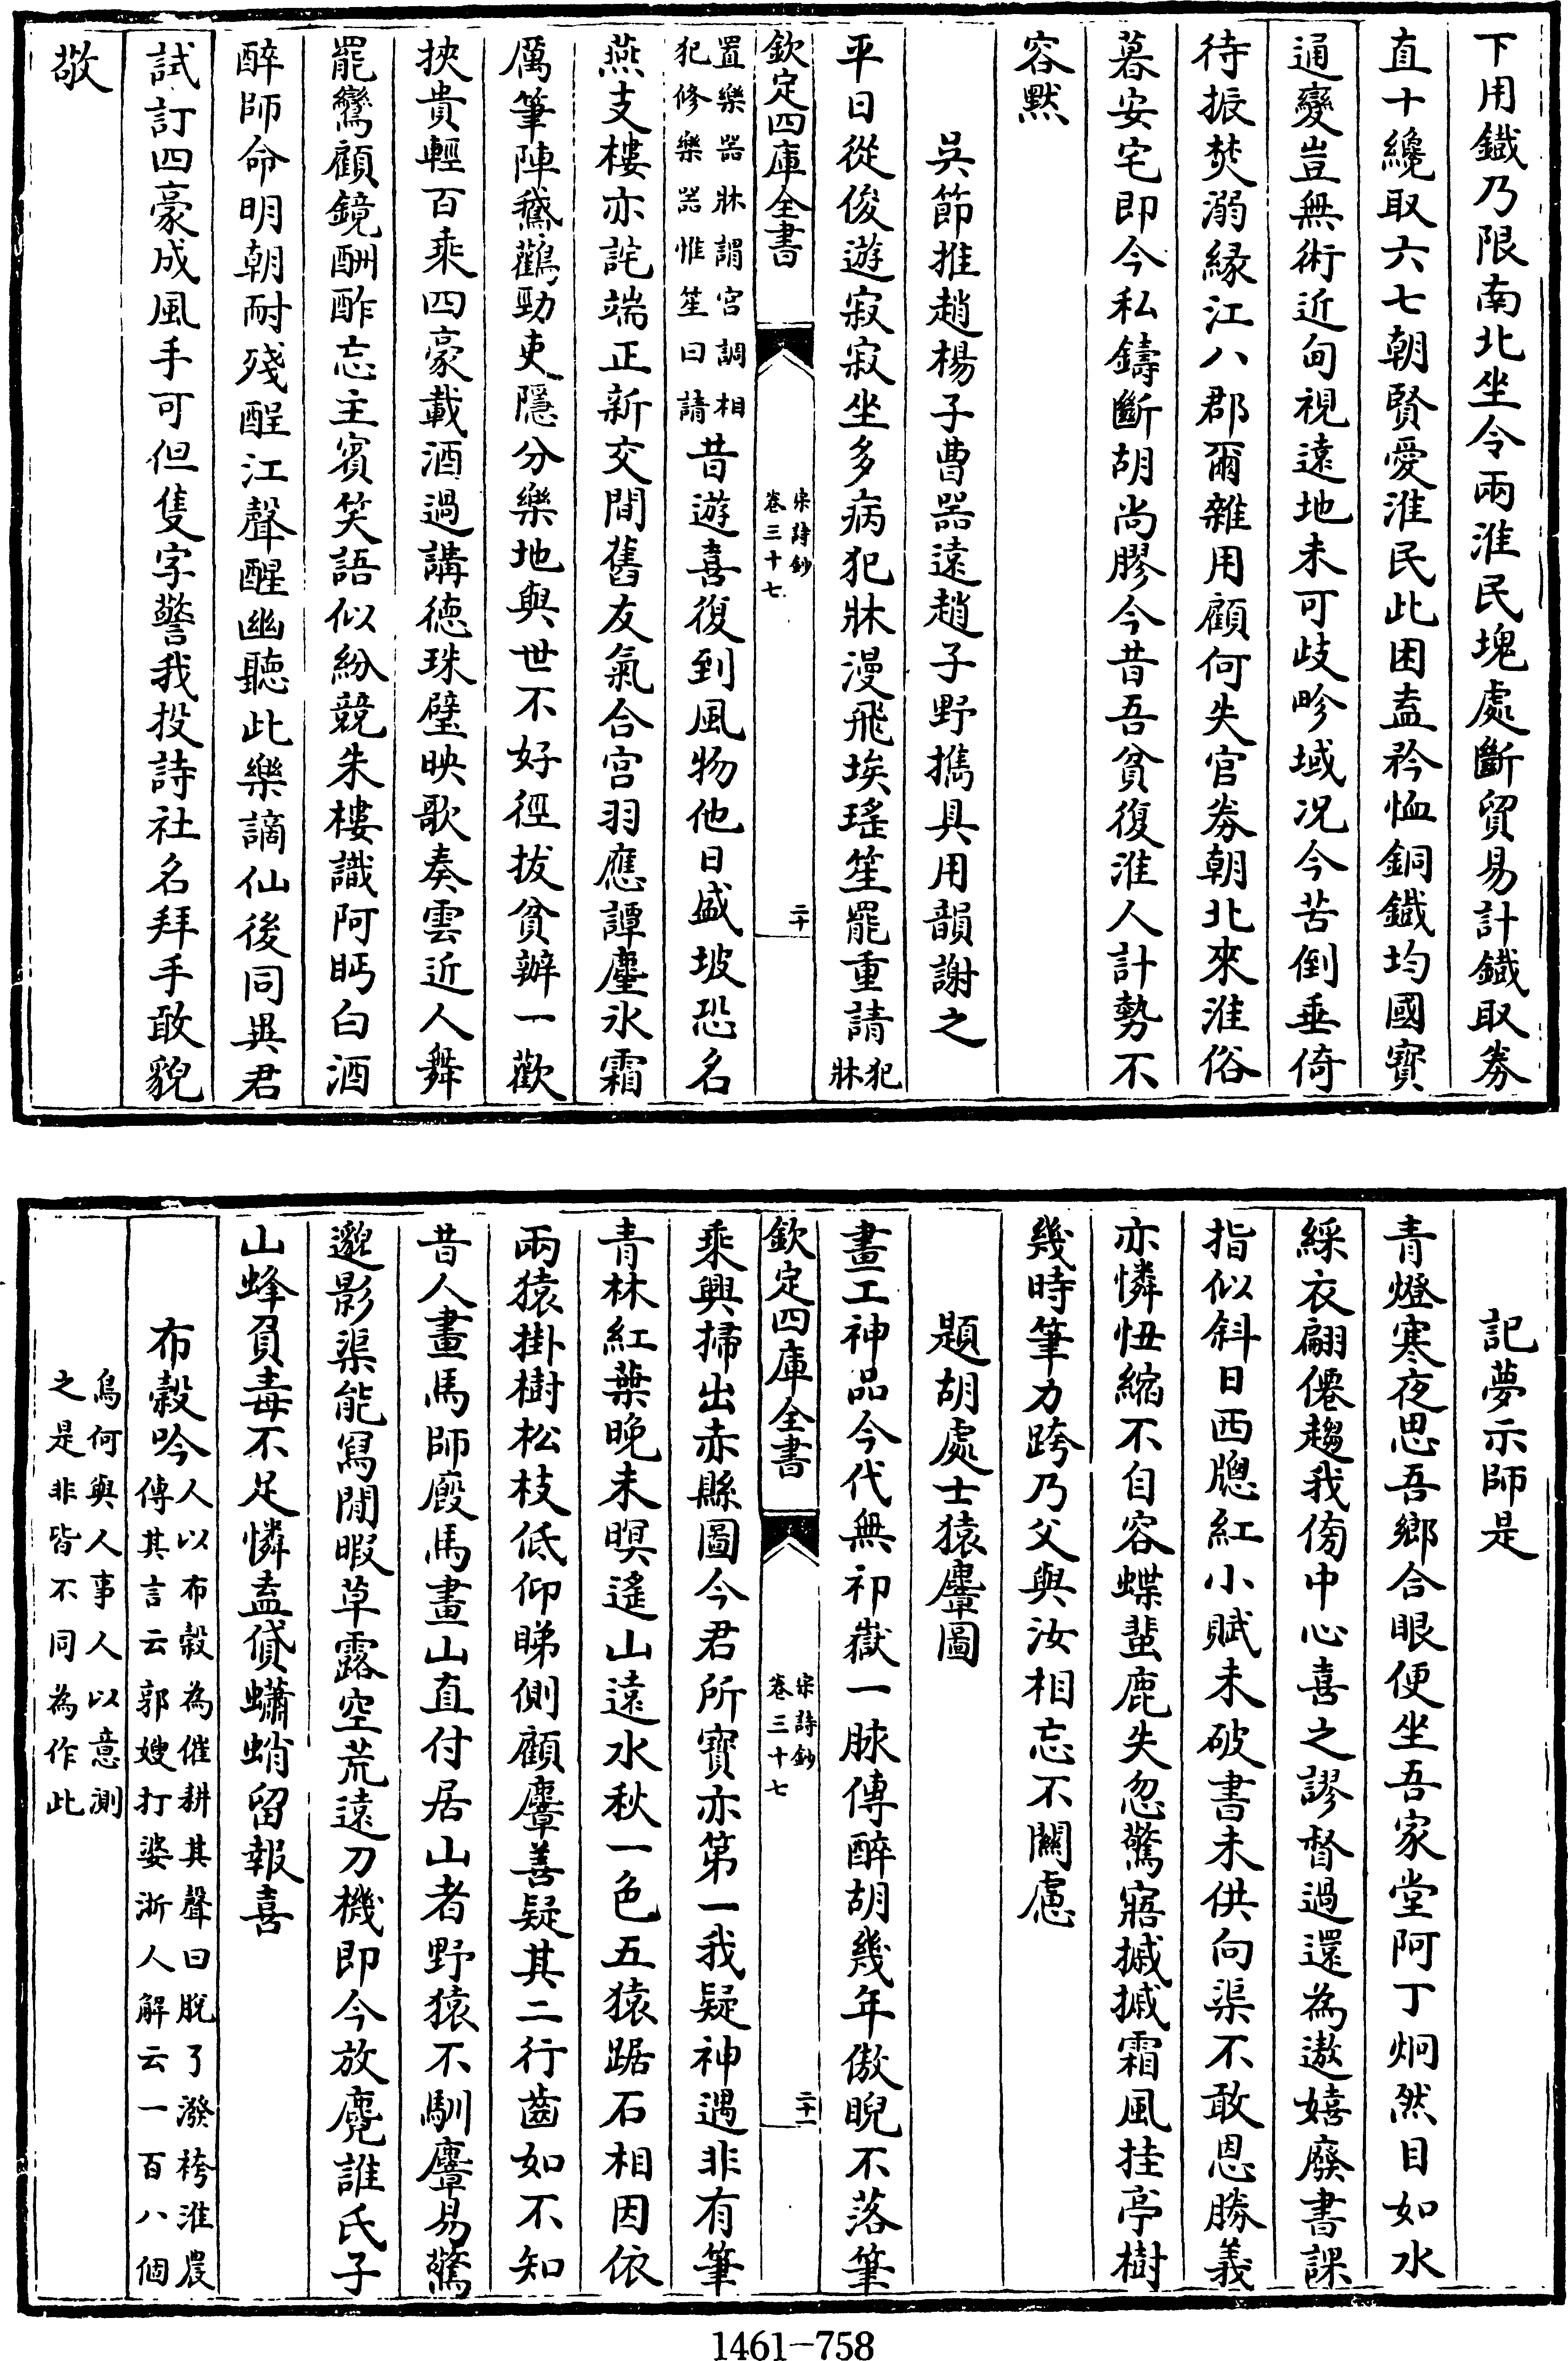 下用鐵乃限南北坐令兩淮民塊處斷貿易計鐵取劵
直十纔取六七朝賢愛淮民此困盍矜恤銅鐵均國寳
通變豈無術近甸視遠地未可歧畛域况今苦倒垂倚
待振焚溺緣江八郡爾雜用顧何失官劵朝北來淮俗
暮安宅即今私鑄斷胡尚膠今昔吾貧復淮人計勢不
容默
吳節推趙楊子曹器遠趙子野攜具用韻謝之
平日從俊遊寂寂坐多病犯牀漫飛埃瑤笙罷重請犯牀
欽定四庫全書
宋詩鈔
卷三十七
二十
置樂器牀謂宮調相
犯修樂器惟笙曰請昔遊喜復到風物他日盛坡恐名
燕支樓亦詫端正新交間舊友氣合宮羽應譚塵氷霜
厲筆陣鵝鸛勁吏隱分樂地與世不好徑拔貧辦一歡
挾貴輕百乘四豪載酒過講德珠璧映歌奏雲近人舞
罷鸞顧鏡酬酢忘主賓笑語似紛競朱樓識阿眄白酒
醉師命明朝耐殘酲江聲醒幽聽此樂謫仙後同與君
試訂四豪成風手可但隻字警我投詩社名拜手敢貌
敬
記夢示師是
青燈寒夜思吾鄉合眼便坐吾家堂阿丁炯然目如水
綵衣翩僊趨我傍中心喜之謬督過還為遨嬉廢書課
指似斜日西牕紅小賦未破書未供向渠不敢恩勝義
亦憐忸縮不自容蝶蜚鹿失忽驚寤摵摵霜風挂亭樹
幾時筆力跨乃父與汝相忘不關慮
題胡處士猿麞圖
畫工神品今代無祁嶽一脉傳醉胡幾年傲睨不落筆
欽定四庫全書
宋詩鈔
卷三十七
二十一
乘興掃出赤縣圖今君所寳亦第一我疑神遇非有筆
青林紅葉晚未暝遙山遠水秋一色五猿踞石相因依
兩猿掛樹松枝低仰睇側顧麞善疑其二行齒如不知
昔人畫馬師廐馬畫山直付居山者野猿不馴麞易驚
邈影渠能冩閒暇草露空荒遠刀機即今放麑誰氏子
山蜂負毒不足憐盍貸蠨蛸留報喜
布穀吟人以布穀為催耕其聲曰脫了潑袴淮農
傳其言云郭嫂打婆浙人解云一百八個
鳥何與人事人以意測
之是非皆不同為作此
1461-758